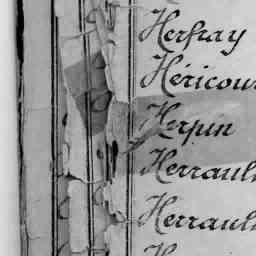 Herfray
Héricour
Herpin
Herrault
Herrault